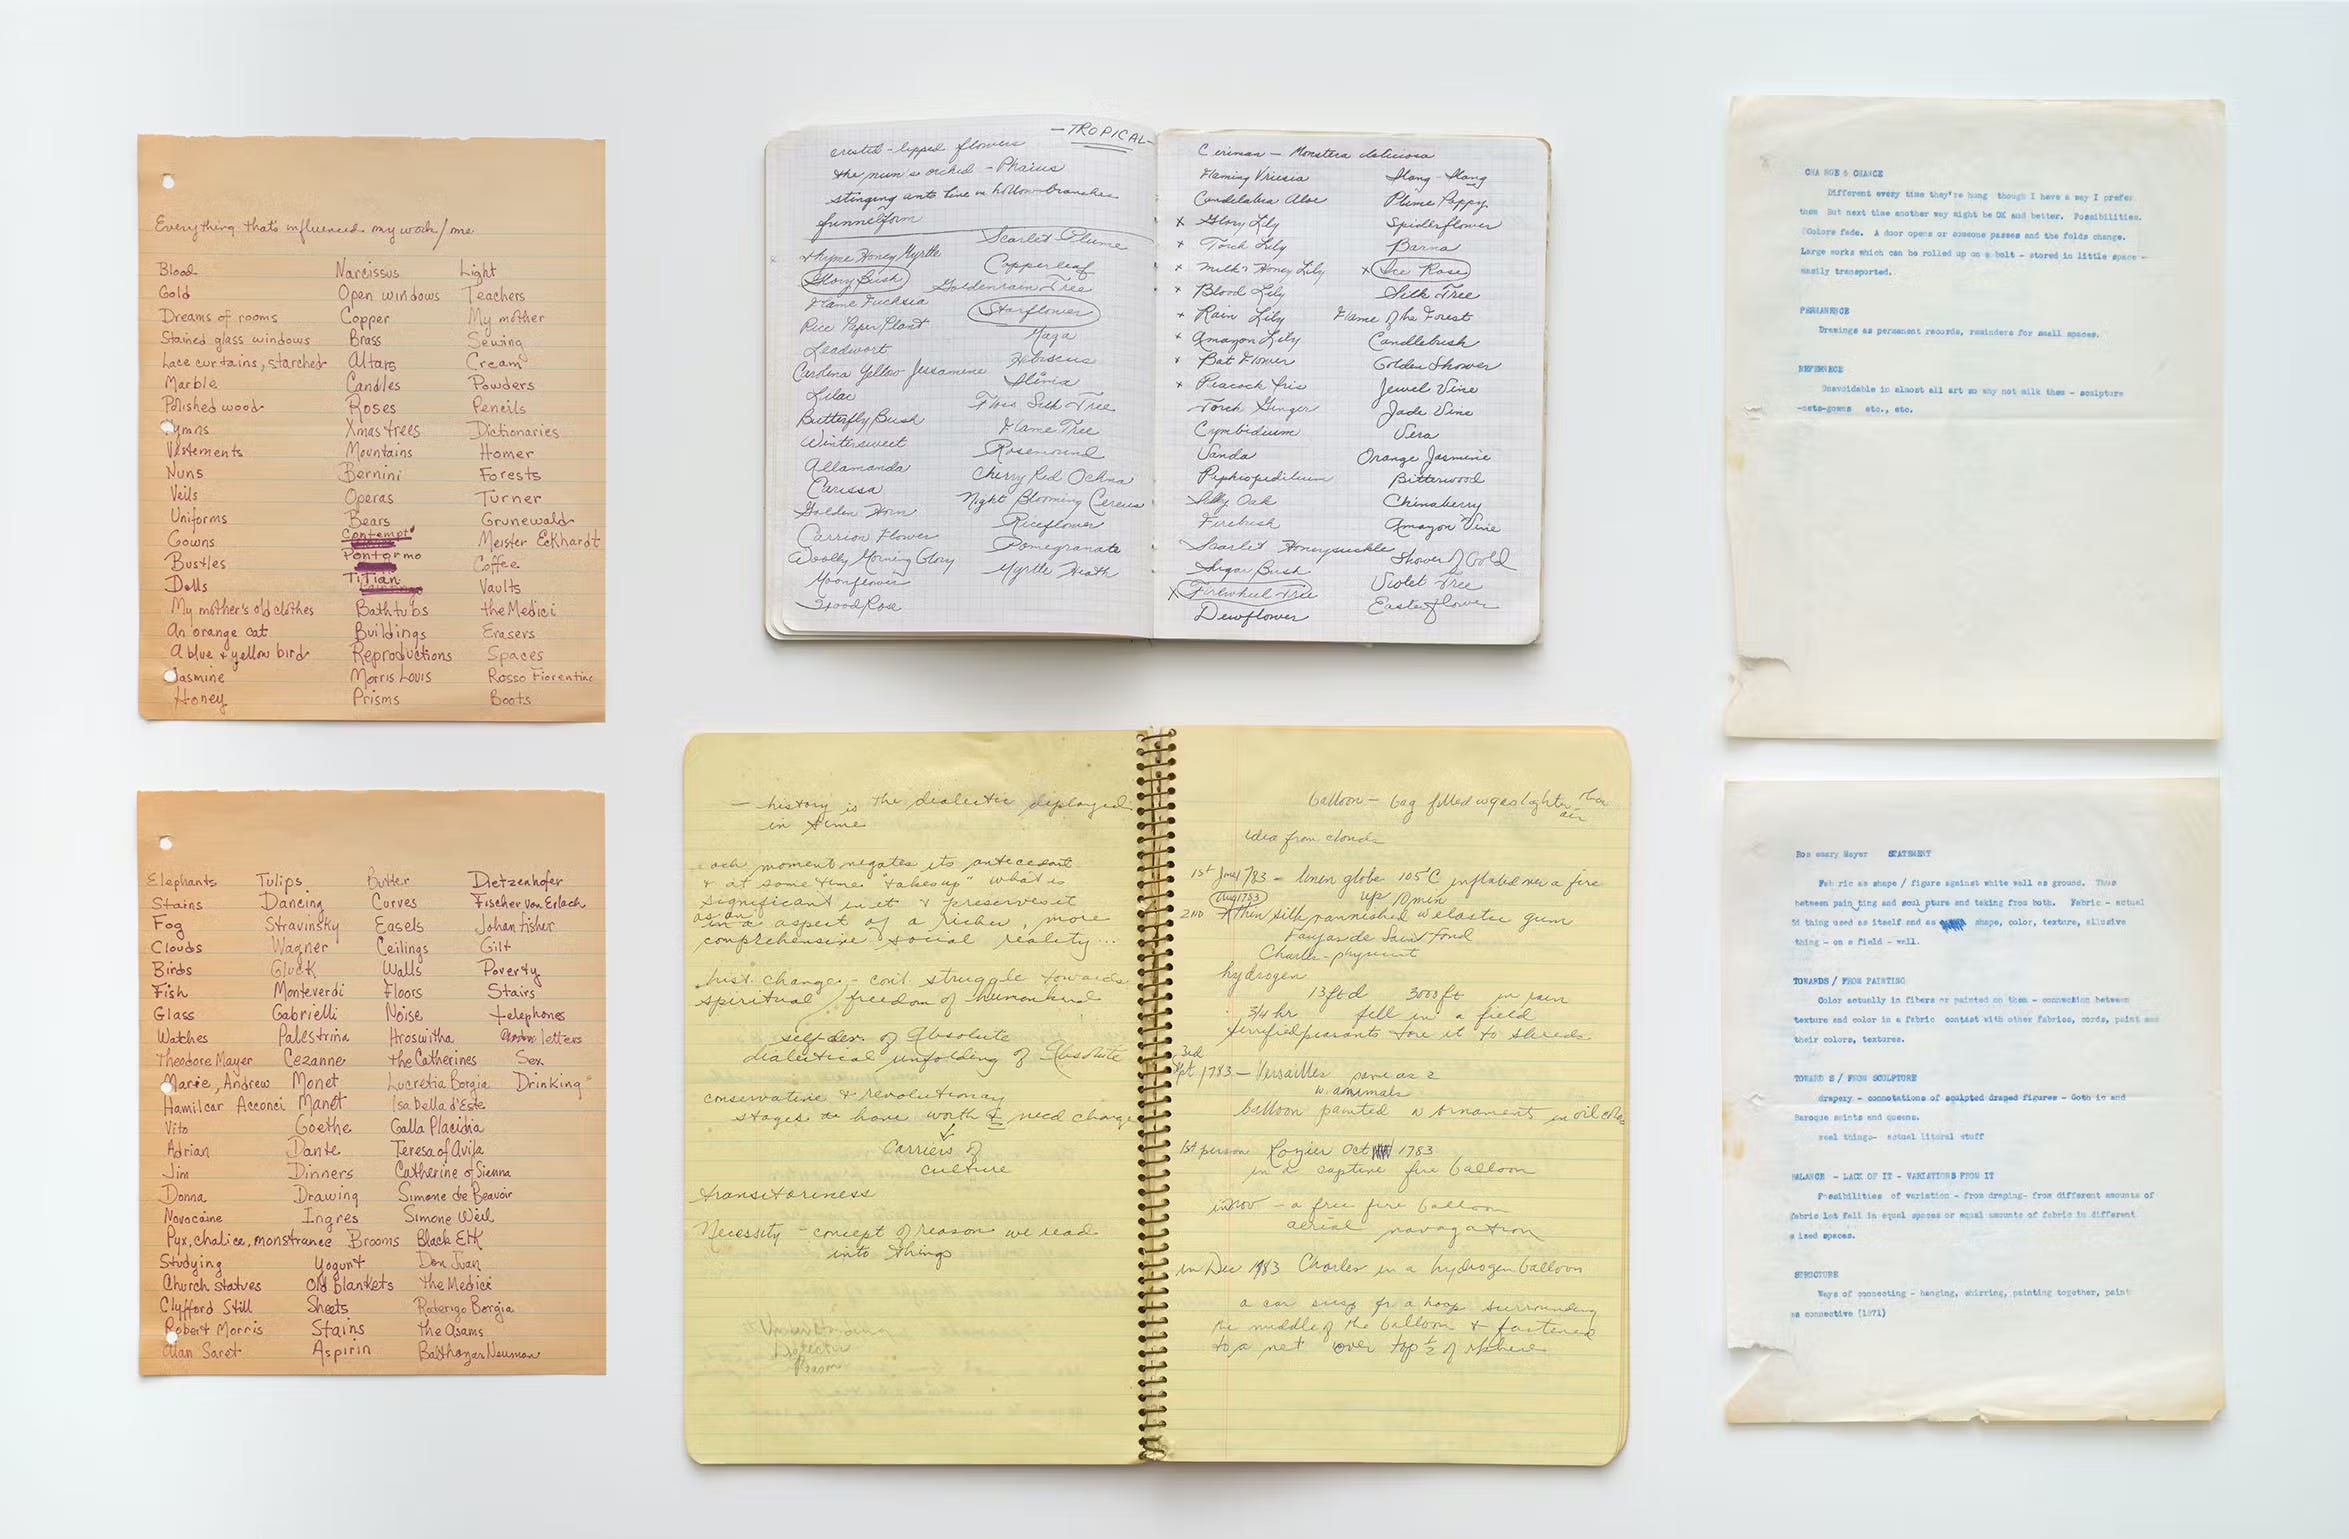 Everything that's influenced my work/me
Blood Narcissus Light
Gold Open windows Teachers
Dreams of rooms Copper My mother
Stained glass windows Brass Sewing
Lace curtains, starched Altars Cream
Marble Candles Powders
Polished wood Roses Pencils
Hymns Xmas trees Dictionaries
Vestements Mountains Homer
Nuns Bernini Forests
Veils Operas Turner
Uniforms Bears Grunewald
Gowns Contempt Meister Eckhardt
Bustles Pontormo Coffee
Dolls Titian Vaults
My mother's old clothes Bathtubs the Medici
An orange cat Buildings Erasers
A blue + yellow bird Reproductions Spaces
Jasmine Morris Louis Rosso Fiorentino
Honey Prisms Boots
Elephants Tulips Butter Dietzenhofer
Stains Dancing Curves Fischer von Erlach
Fog Stravinsky Easels Johan Fisher
Clouds Wagner Ceilings Gilt
Birds Gluck Walls Poverty
Fish Monteverdi Floors Stairs
Glass Gabrielli Noise telephones
Watches Palestrina Hroswitha letters
Theodore Mayer Cezanne the Catherines Sex
Marie, Andrew Monet Lucretia Borgia Drinking
Hamilcar Acconci Manet Isabella d'Este
Vito Goethe Galla Placidia
Adrian Dante Teresa of Avila
Jim Dinners Catherine of Sienna
Donna Drawing Simone de Beauvoir
Novocaine Ingres Simone Weil
Pyx, chalice, monstrance Brooms Black Elk
Studying Yogurt Don Juan
Church statues Old Blankets the Medici
Clyfford Still Sheets Roderigo Borgia
Robert Morris Stains the Asams
Alan Saret Aspirin Balthazar Neuman
—TROPICAL—
crested-lipped flowers
the nun's orchid - Phaius
stinging ants live in hollow branches
funnelform
Scarlet Plume
x thyme Honey Myrtle
Glory Bush
Flame Fuchsia
Rice Paper Plant
Leadwort
Carolina Yellow Jessamine
Lilac
Butterfly Bush
Wintersweet
Allamanda
Carissa
Golden Horn
Carrion Flower
Woolly Morning Glory
Moonflower
Wood Rose
Copperleaf
Goldenrain Tree
Starflower
Maga
Hibiscus
Floss Silk Tree
Flame Tree
Rosemound
Cherry Red Ochna
Night Blooming Cereus
Riceflower
Pomegranate
Myrtle Heath
Ceriman - Monstera deliciosa
Flaming Vriesia
Candelabra Aloe
x Glory Lily
x Torch Lily
x Milk + Honey Lily
x Blood Lily
x Rain Lily
x Amazon Lily
x Bat Flower
x Peacock Iris
Torch Ginger
Cymbidium
Vanda
Paphiopedilum
Silky Oak
Firebush
Scarlet Honeysuckle
Sugar Bush
x Firewheel Tree
Dewflower
Ilang-Ilang
Plume Poppy
Spiderflower
Barna
x Ice Rose
Silk Tree
Flame of the Forest
Candlebush
Golden Shower
Jewel Vine
Jade Vine
Vera
Orange Jasmine
Bitterwood
Chinaberry
Amazon Vine
Shower of Gold
Violet Tree
Easterflower
— history is the dialectic deployed
in time
each moment negates its antecedent
+ at some time "takes up" what is
significant in it + preserves it
as an
in a aspect of a richer, more
comprehensive social reality...
hist. change - cont. struggle towards
spiritual / freedom of humankind
self-dev. of Absolute
dialectical unfolding of Absolute
conservative + revolutionary
stages have worth + need change
Carriers of
culture
transitoriness
Necessity - concept of reason we read
into things
balloon - bag filled w gas lighter than
air
idea from clouds
1st June 1783 - linen globe 105°C inflated over a fire
Aug 1783 up 10 min
2ND thin silk varnished w elastic gum
Faujas de Saint Fond
Charles - physicist
hydrogen
13ft d 3000 ft in rain
3/4 hr fell in a field
terrified peasants tore it to shreds
3rd
Spt 1783 - Versailles same as 2
w. animals
balloon painted w ornaments in oil color
1st person Rozier Oct 1783
in a captive fire balloon
in Nov - a free fire balloon
aerial navagation
in Dec 1983 Charles in a hydrogen balloon
a car susp fr a hoop surrounding
the middle of the balloon + fastened
to a net over top ½ of sphere
CHA NGE & CHANCE
Different every time they're hung though I have a way I prefer
them But next time another way might be OK and better. Possibilities.
Colors fade. A door opens or someone passes and the folds change.
Large works which can be rolled up on a bolt - stored in little space -
easily transported.
PERMANENCE
Drawings as permanent records, reminders for small spaces.
REFERNECE
Unavoidable in almost all art so why not milk them - sculpture
-nets-gowns etc., etc.
Ros emary Mayer STATEMENT
Fab ric as shape / figure against white wall as ground. Thus
between pain ting and scul pture and taking from both. Fabric - actual
thing used as itself and as shape, color, texture, allusive
thing - on a field - wall.
TOWARDS / FROM PAINTING
Color actually in fibers or painted on them - connection between
texture and color in a fabric contast with other fabrics, cords, paint and
their colors, textures.
TOWARD S / FROM SCULPTURE
drapery - connotations of sculpted draped figures - Goth ic and
Baroque saints and queens.
real things- actual literal stuff
BALANCE - LACK OF IT - VARIATIONS FROM IT
Possibilities of variation - from draping- from different amounts of
fabric let fall in equal spaces or equal amounts of fabric in different
s ized spaces.
STRUCTURE
Ways of connecting - hanging, shirring, painting together, paint
as connective (1971)